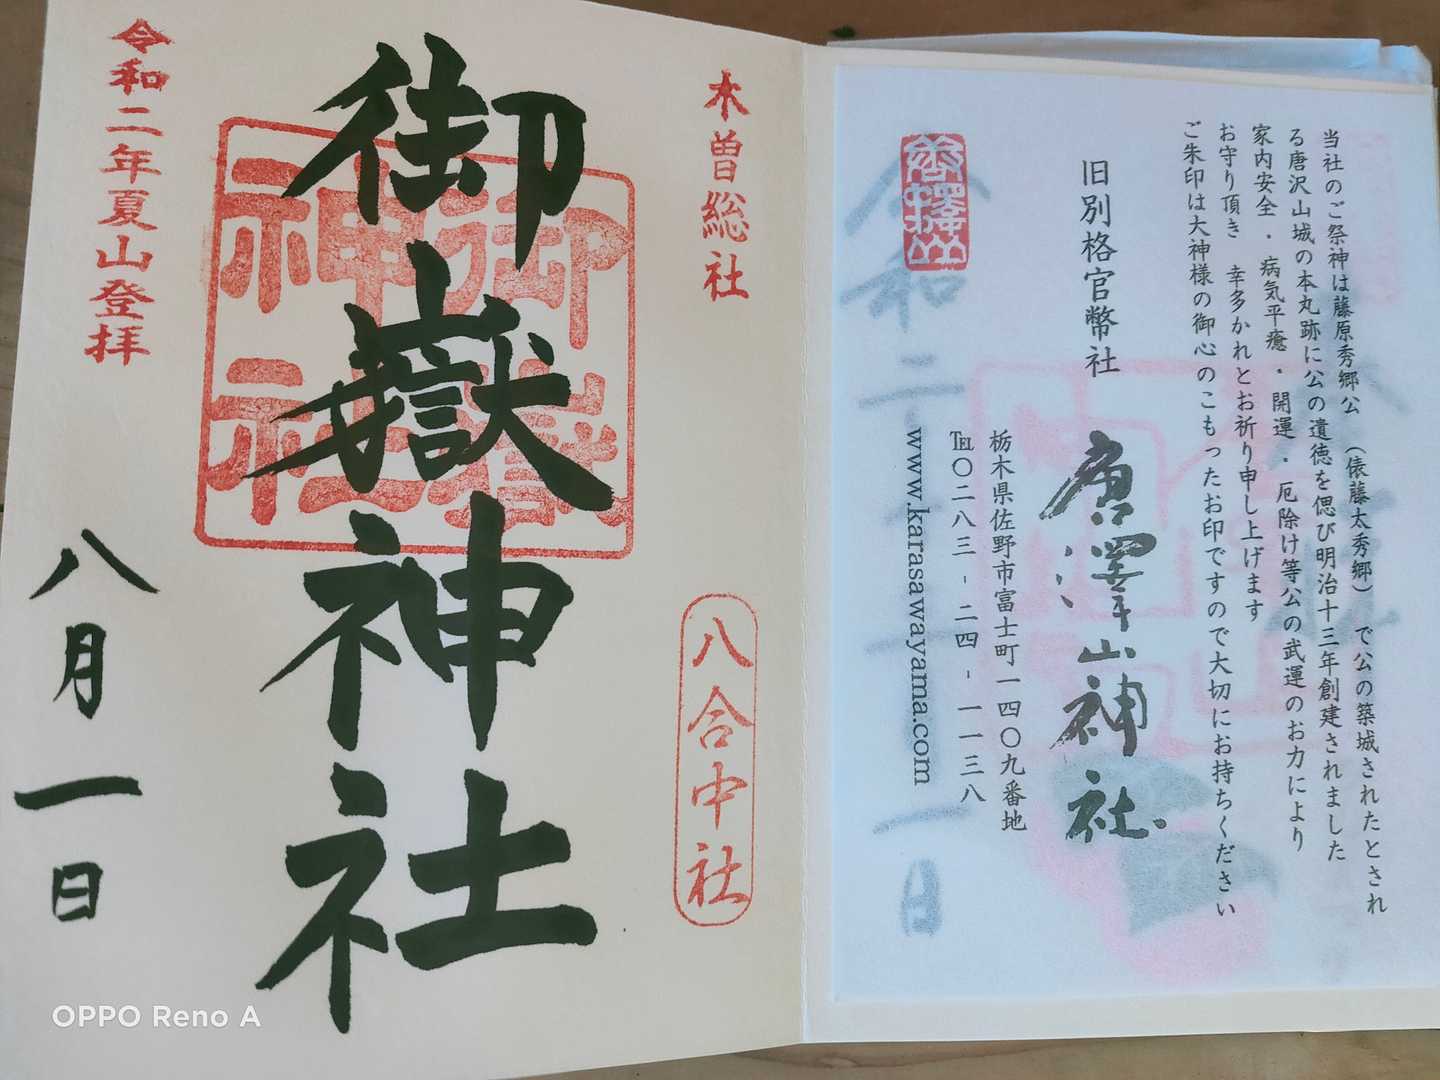 当社のご祭神は藤原秀郷公（俵藤太秀郷）で公の築城されたとされ
る唐沢山城の本丸跡に公の遺徳を偲び明治十三年創建されました
家内安全・病気平癒・開運・厄除け等公の武運のお力により
お守り頂き 幸多かれとお祈り申し上げます
ご朱印は大神様の御心のこもったお印ですので大切にお持ちください
旧別格官幣社
唐澤山神社
栃木県佐野市富士町一四〇九番地
℡〇二八三-二四-一一三八
www.karasawayama.com
令和二
一日
木曽総社
八合中社
御嶽神社
御嶽
神社
令和二年夏山登拝
八月一日
OPPO Reno A